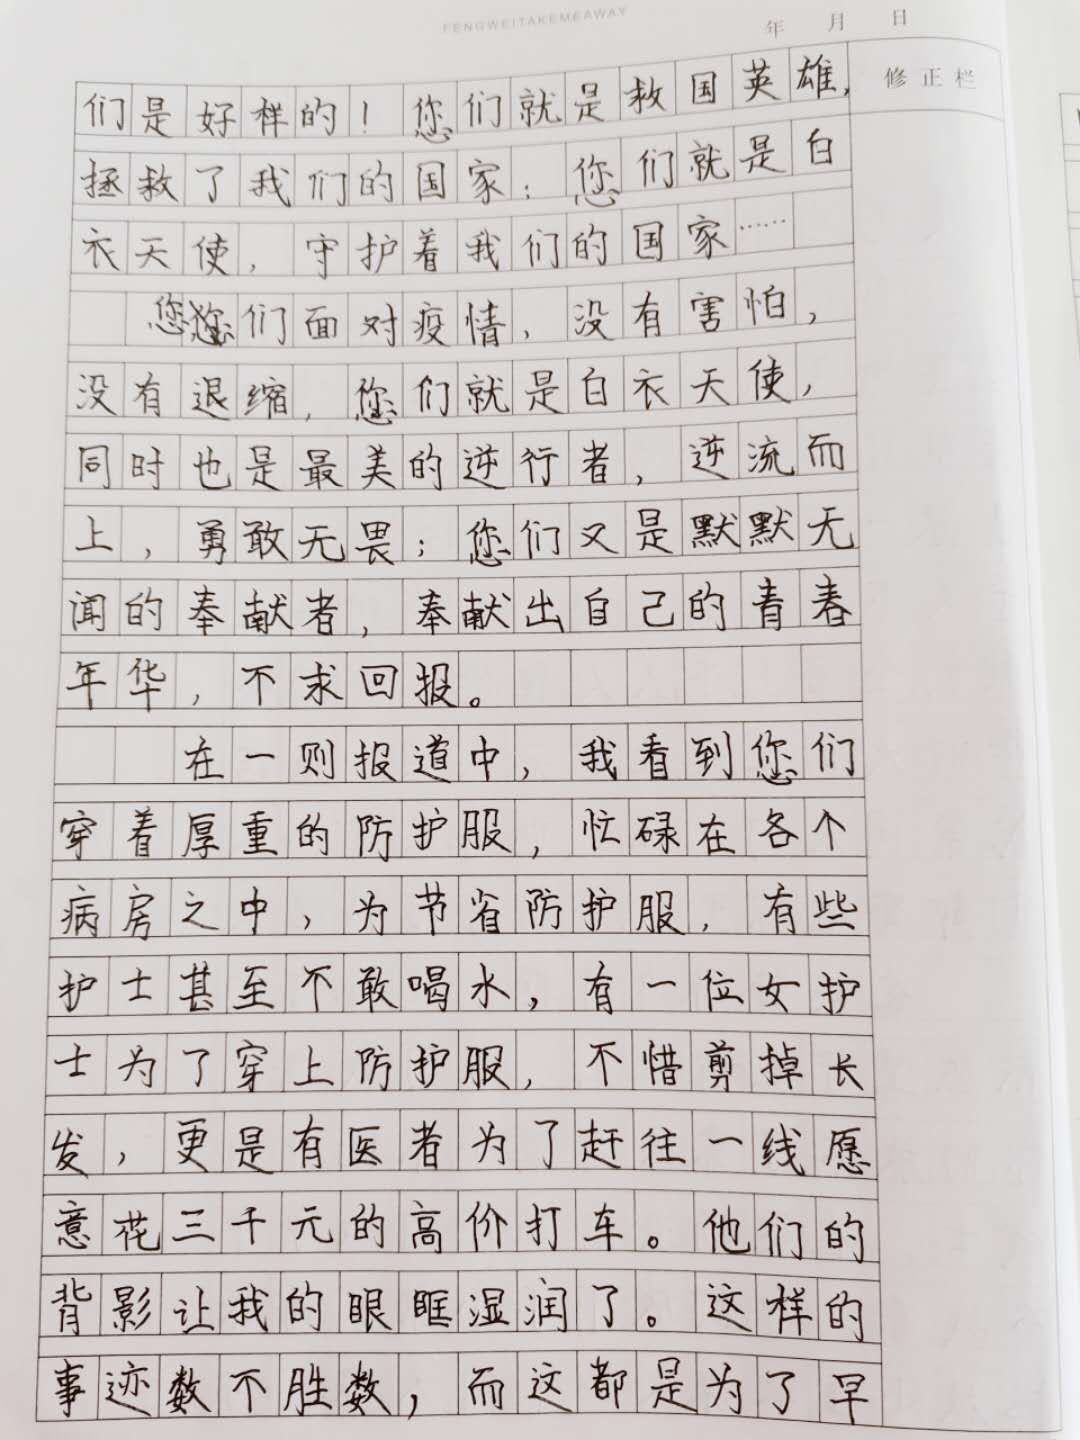 FENGWEITAKEMEAWAY
年 月 日
修正栏
们是好样的！您们就是救国英雄，
拯救了我们的国家；您们就是白
衣天使，守护着我们的国家……
您您们面对疫情，没有害怕，
没有退缩，您们就是白衣天使，
同时也是最美的逆行者，逆流而
上，勇敢无畏；您们又是默默无
闻的奉献者，奉献出自己的青春
年华，不求回报。
在一则报道中，我看到您们
穿着厚重的防护服，忙碌在各个
病房之中，为节省防护服，有些
护士甚至不敢喝水，有一位女护
士为了穿上防护服，不惜剪掉长
发，更是有医者为了赶往一线愿
意花三千元的高价打车。他们的
背影让我的眼眶湿润了。这样的
事迹数不胜数，而这都是为了早